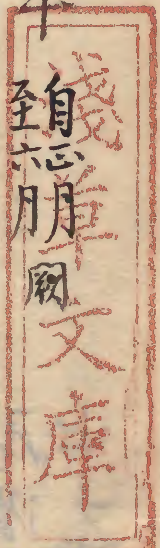 自正月
至六月
闕
淺草文庫